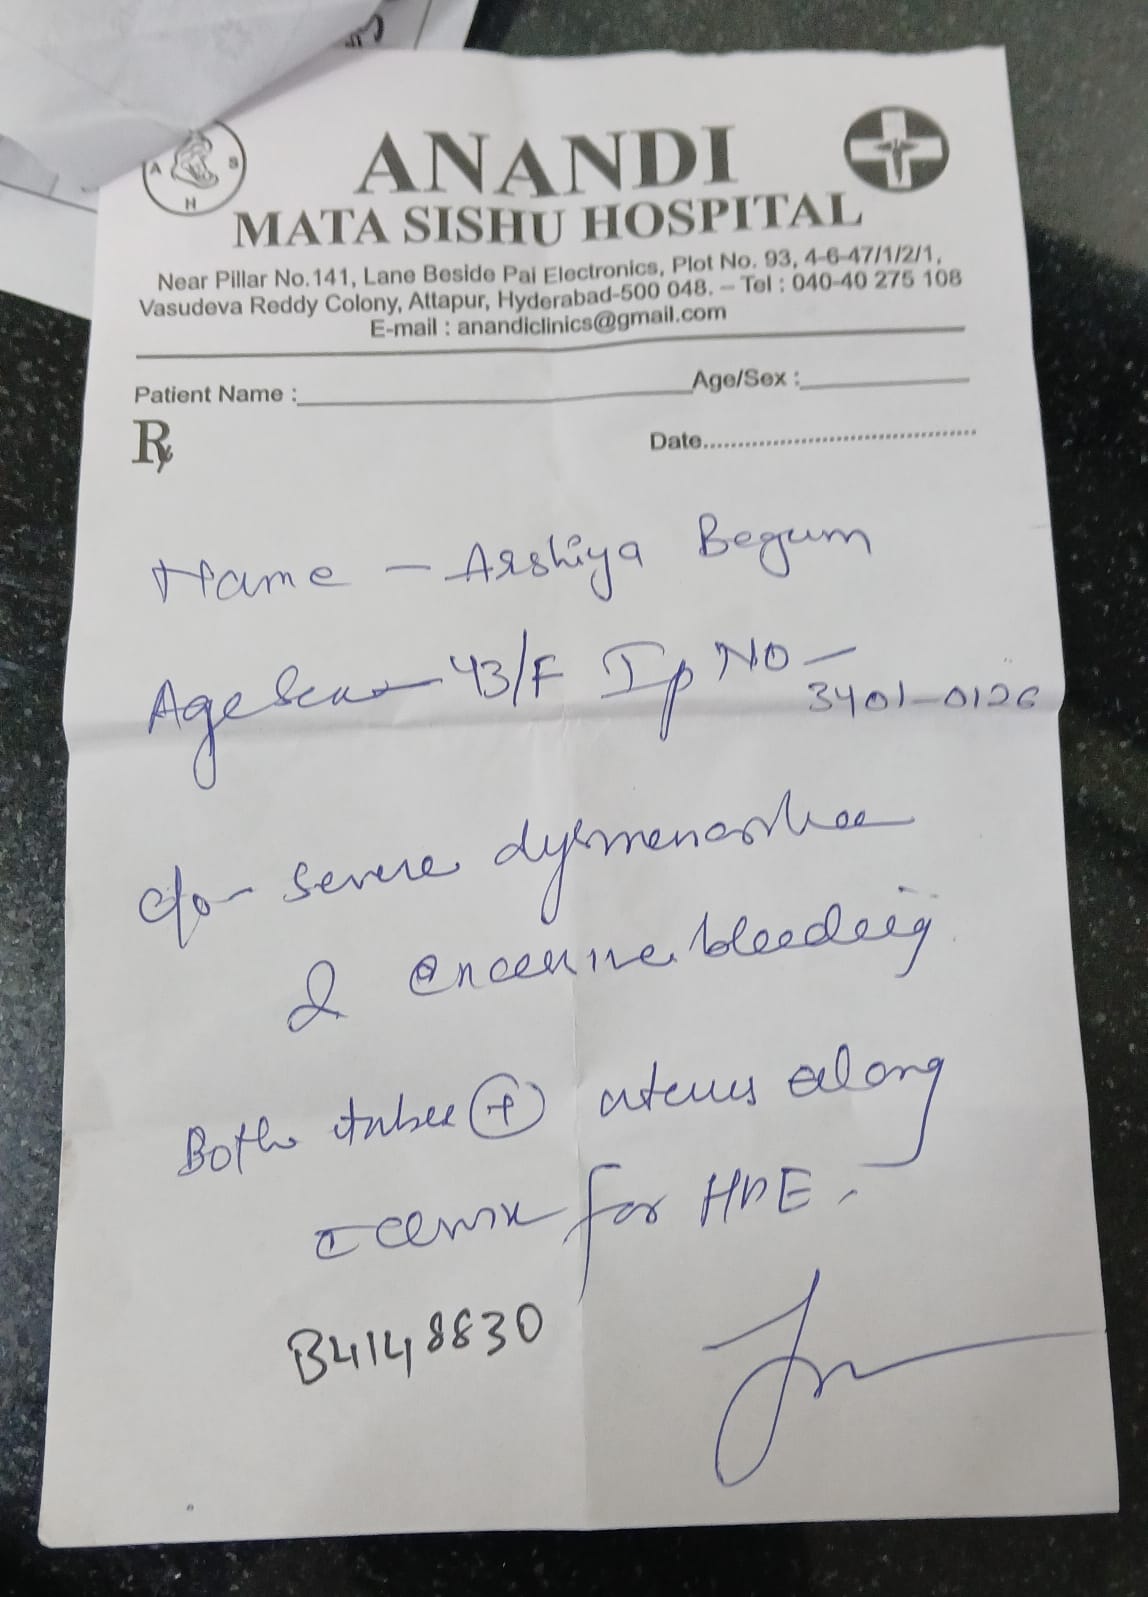 A S
H
ANANDI
MATA SISHU HOSPITAL
Near Pillar No.141, Lane Beside Pai Electronics, Plot No. 93, 4-6-47/1/2/1,
Vasudeva Reddy Colony, Attapur, Hyderabad-500 048. – Tel : 040-40 275 108
E-mail : anandiclinics@gmail.com
Patient Name : Age/Sex :
Rx
Date
Name - Arshiya Begum
Age 43/F Ip NO -
3401-0126
c/o - severe dysmenorrhoea
& bleeding
Both tubes + uterus along
c cervix for HPE.
B4148830